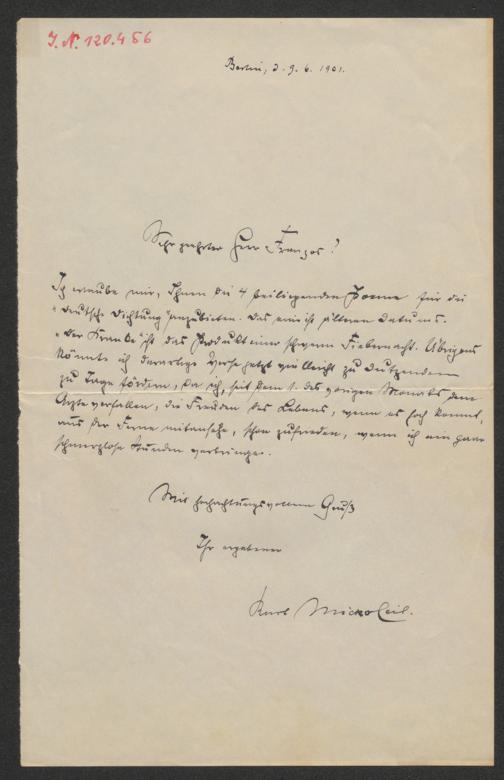 J. N. 120.456
Berlin, d. 9. 6. 1901.
Sehr geehrter Herr Franzos!
Ich erlaube mir, Ihnen die 4 beiliegenden Poeme für die
"Deutsche Dichtung" anzubieten. Das eine ist älteren Datums.
"Der Kranke" ist das Produkt einer schweren Fiebernacht. Übrigens
könnte ich derartige Verse jetzt vielleicht zu Dutzenden
zu Tage fördern, da ich, seit dem 1. des vorigen Monats dem
Arzte verfallen, die Freuden des Lebens, wenn es hoch kommt,
aus der Ferne mitansehe, schon zufrieden, wenn ich ein paar
schmerzlose Stunden verbringe.
Mit hochachtungsvollem Gruß
Ihr ergebener
Karl